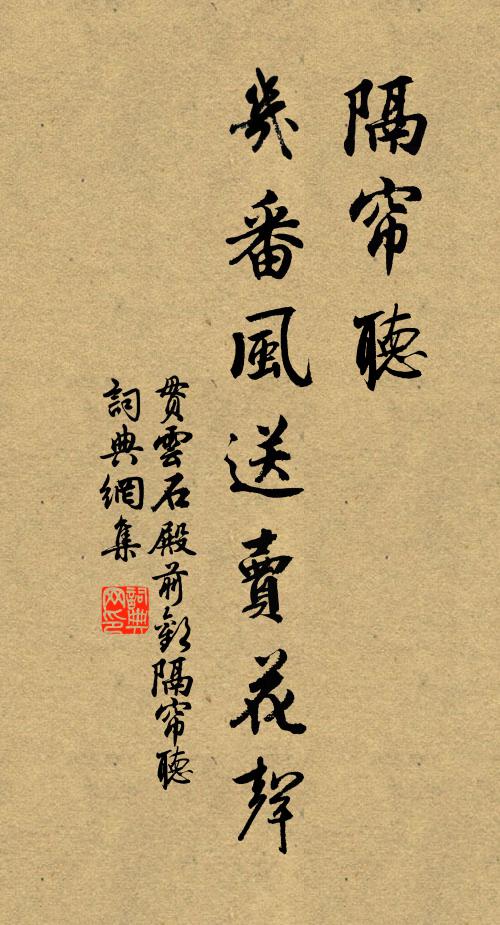 隔帘聽
幾番風送賣花聲
貫雲石殿前歡隔帘聽
詞典網集
詞典网印